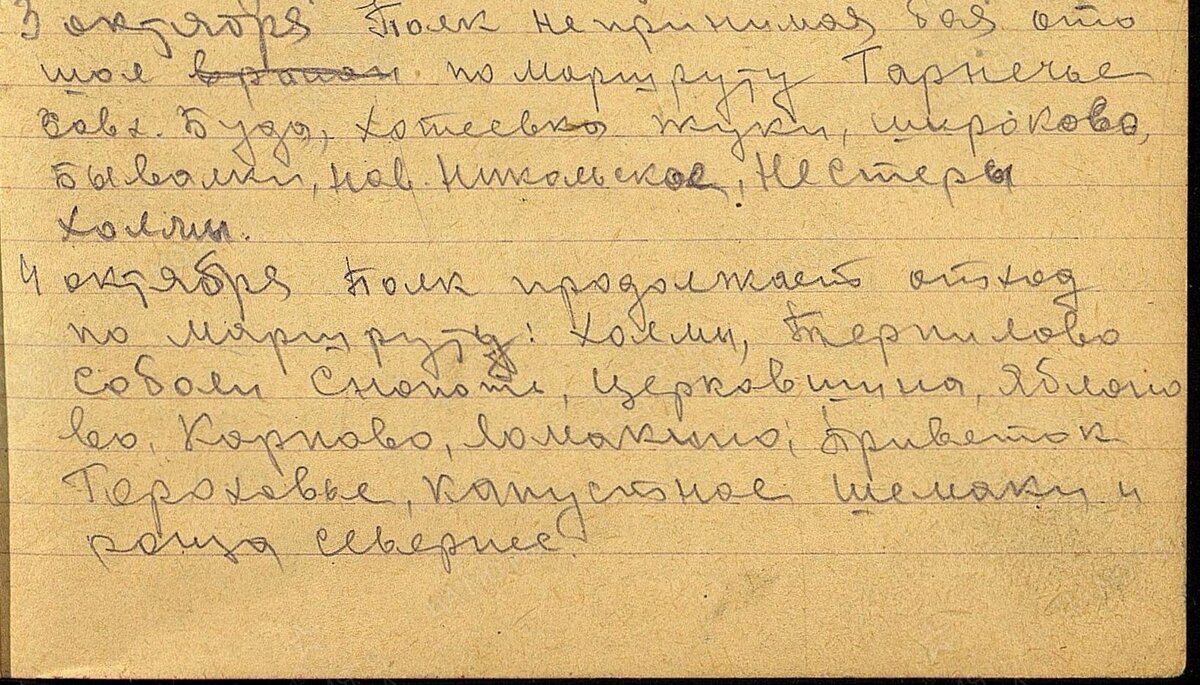 3 октября Полк непринимая боя ото
шол в район по маршруту Гарнечье
Совх. Буда, Хотеевка Жуки, Широково,
Бывалки, Нов. Никольское, Нестеры
Холмы.
4 октября Полк продолжает отход
по маршруту: Холмы, Терпилово
Соболи Снопоть, Церковщина, Яблоно
во, Карпово, Ломакино, Приветок
Гороховье, Капустное Шемаки и
роща севернее.